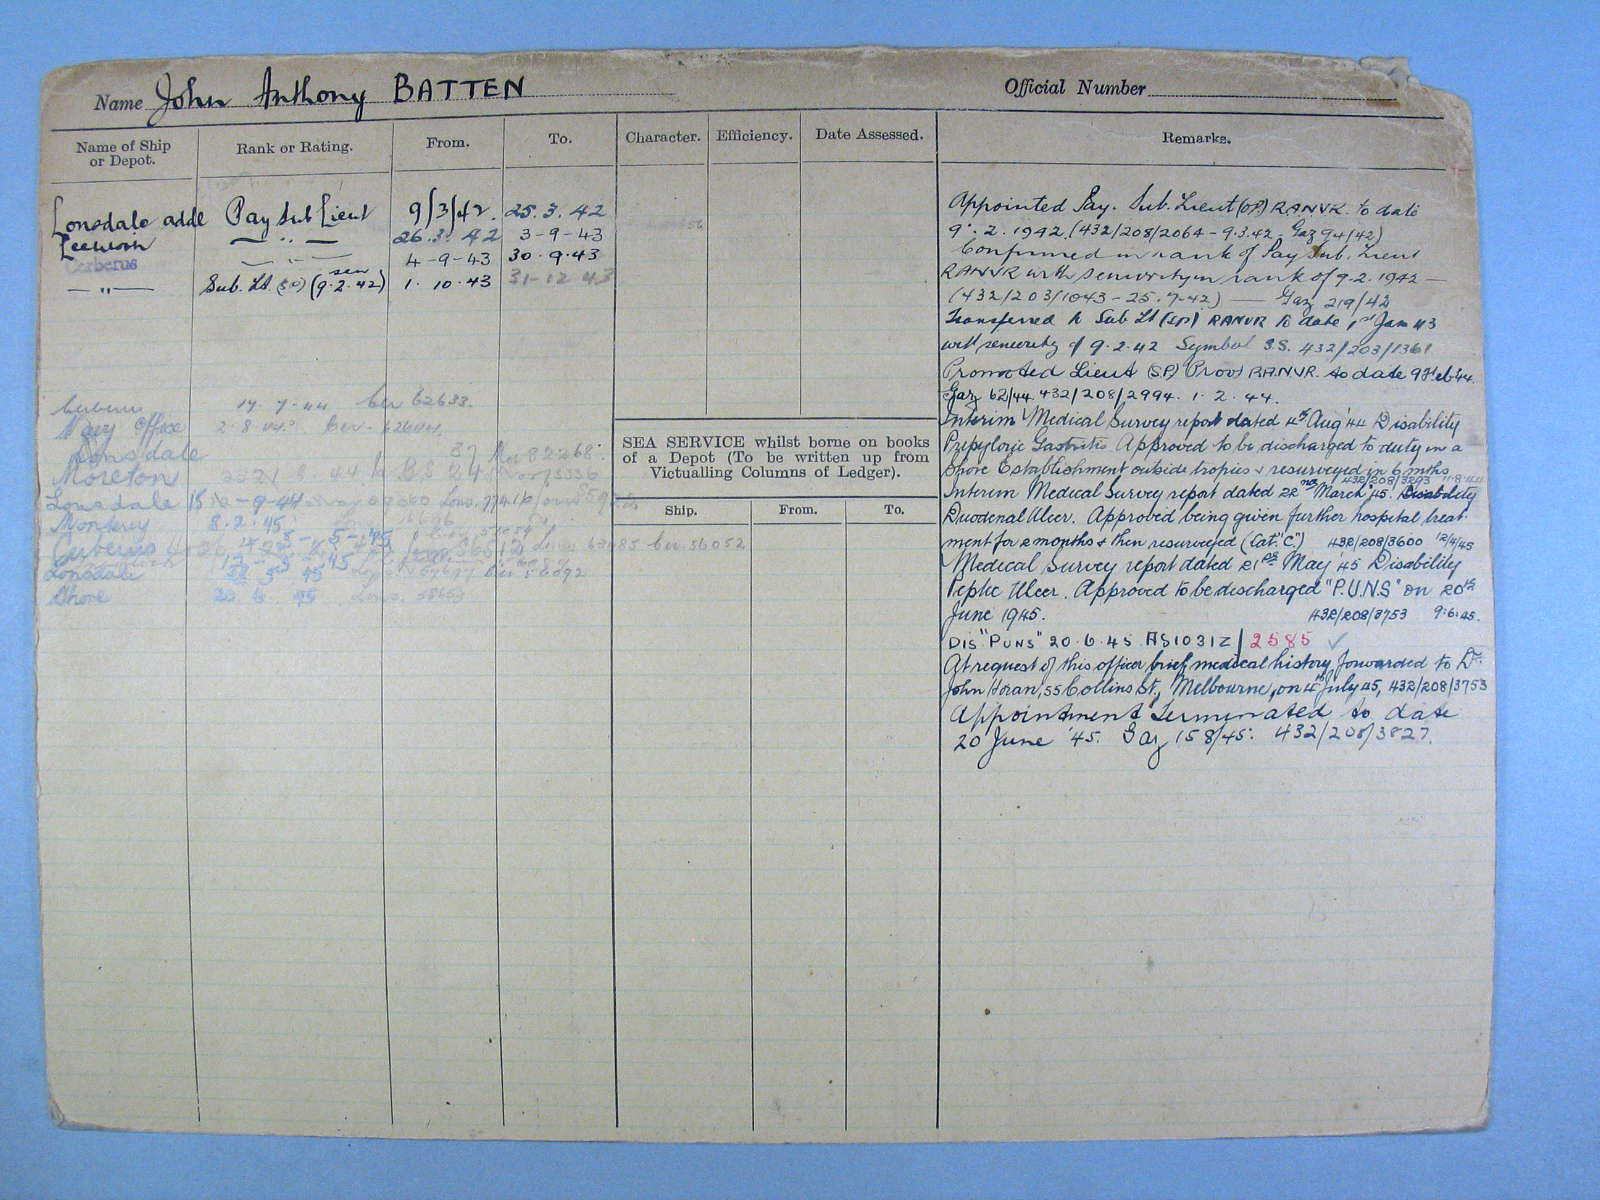 Name John Anthony BATTEN Official Number
Name of Ship or Depot. Rank or Rating. From. To. Character. Efficiency. Date Assessed. Remarks.
Lonsdale addl Pay Sub Lieut 9/3/42. 25.3.42
Leeuwin — " — 26.3.42 3-9-43
Cerberus — " — 4-9-43 30.9.43
— " — Sub. Lt (SP) (sen 9.2.42) 1.10.43 31-12-43
Cerberus 17.7.44 Cer 62633.
Navy Office 2.8.44. Cer.
Lonsdale 82268.
Moreton
Lonsdale 15 -9-44 Lons.
Monterey 8.2.45
Cerberus Cer 56052
Lonsdale
Shore 20 6 45 Lons. 58653
SEA SERVICE whilst borne on books
of a Depot (To be written up from
Victualling Columns of Ledger).
Ship. From. To.
Appointed Pay. Sub. Lieut (SP) RANVR. to date
9.2.1942. (432/208/2064 - 9.3.42. Gaz 94/42)
Confirmed in rank of Pay Sub. Lieut
RANVR with seniority in rank of 9.2.1942 —
(432/203/1043 - 25.7.42) — Gaz 219/42
Transferred to Sub Lt (SP) RANVR to date 1st Jan 43
with seniority of 9.2.42 Symbol S.S. 432/203/1361
Promoted Lieut (SP) Prov) RANVR. to date 9 Feb '44.
Gaz 62/44. 432/208/2994. 1.2.44.
Interim Medical Survey report dated 4th Aug '44 Disability
Prepyloric Gastritis Approved to be discharged to duty in a
Shore Establishment outside tropics & resurveyed in 6 mths
432/208/3293 11.8.44
Interim Medical Survey report dated 22nd March '45. Disability
Duodenal Ulcer. Approved being given further hospital treat-
ment for 2 months & then resurveyed (Cat. "C") 432/208/3600 12/4/45
Medical Survey report dated 21st May '45 Disability
Peptic Ulcer. Approved to be discharged "P.U.N.S" on 20th
June 1945. 432/208/3753 9.6.45.
DIS "PUNS" 20.6.45 AS1031Z/2585 ✓
At request of this officer brief medical history forwarded to Dr.
John Horan, 55 Collins St., Melbourne, on 4th July 45, 432/208/3753
Appointment Terminated to date
20 June '45. Gaz 158/45. 432/208/3827.